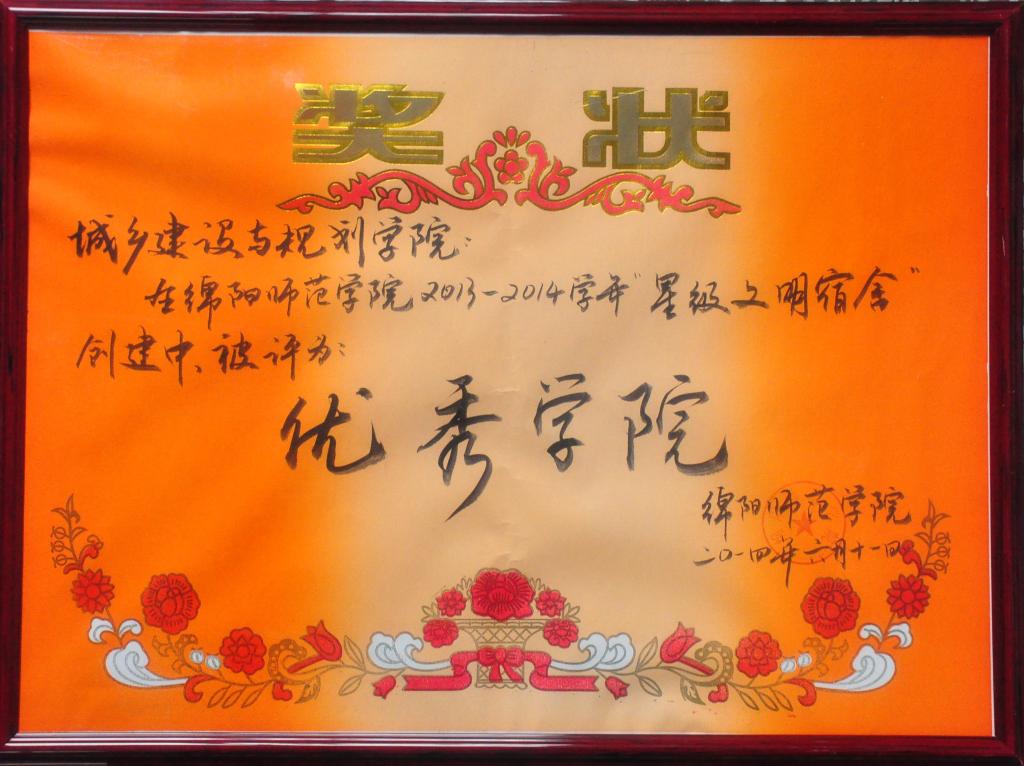 奖状
城乡建设与规划学院:
在绵阳师范学院2013-2014学年"星级文明宿舍"
创建中、被评为:
优秀学院
绵阳师范学院
二〇一四年六月十一日